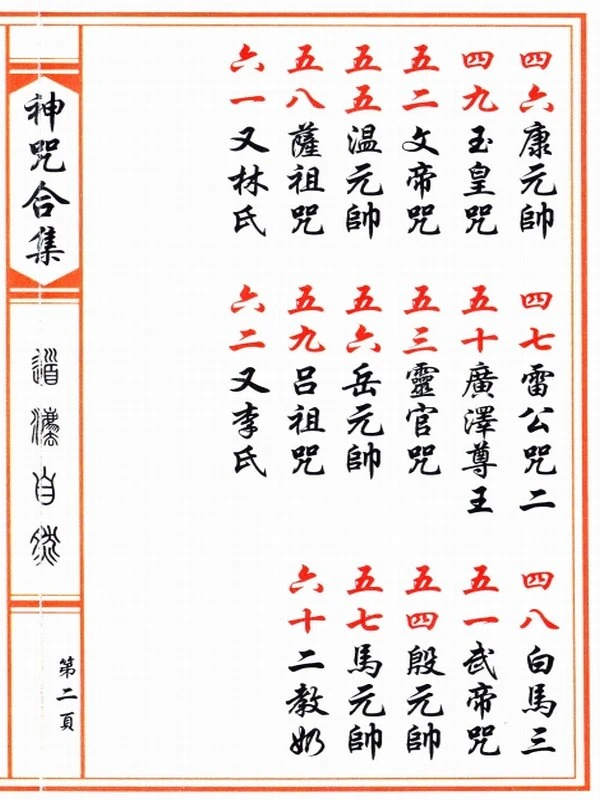 四六康元帥
四七雷公咒二
四八白馬三
四九玉皇咒
五十廣澤尊王
五一武帝咒
五二文帝咒
五三靈官咒
五四殷元帥
五五温元帥
五六岳元帥
五七馬元帥
五八薩祖咒
五九呂祖咒
六十二教奶
六一又林氏
六二又李氏
神咒合集
道法自然
第二頁